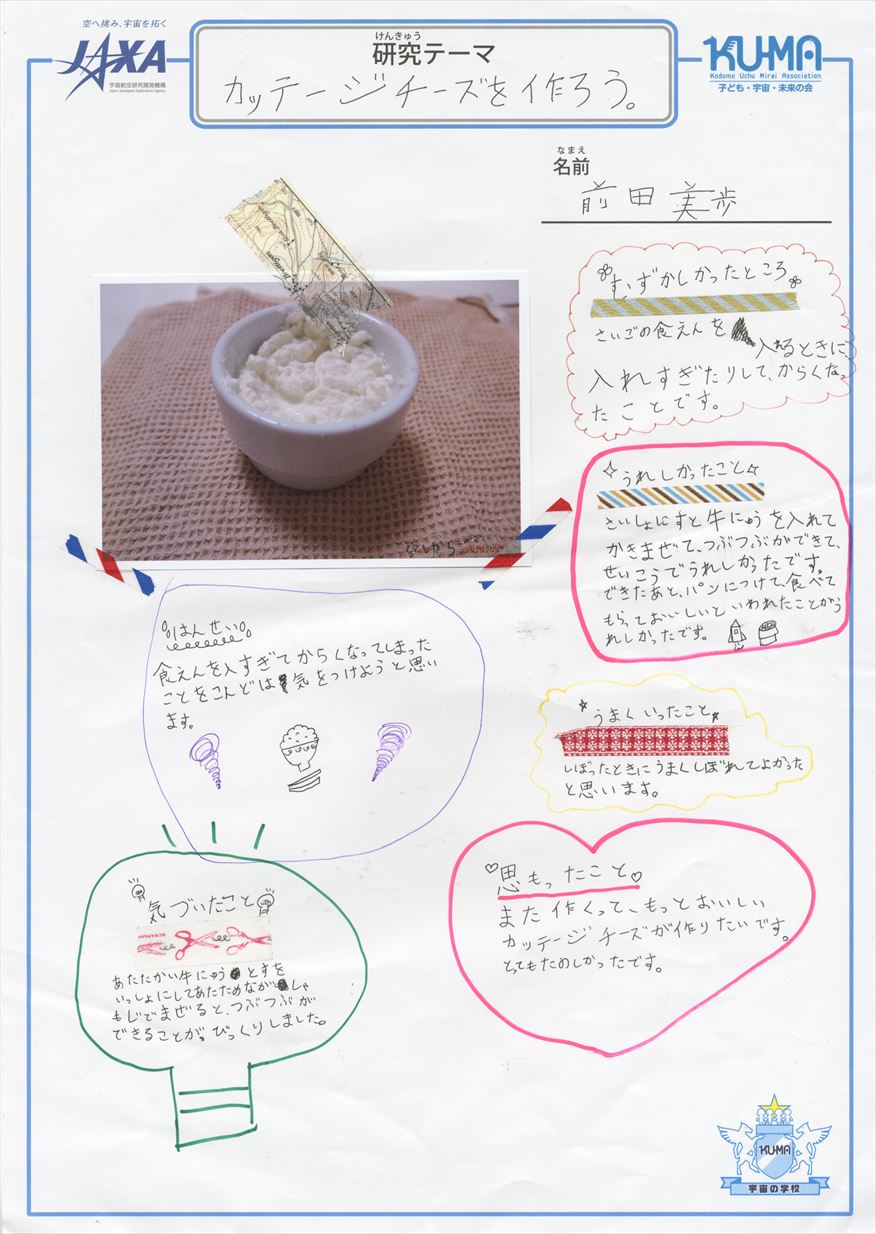 空へ挑み、宇宙を拓く
JAXA
宇宙航空研究開発機構
Japan Aerospace Exploration Agency
けんきゅう
研究テーマ
カッテージチーズを作ろう。
KU-MA
Kodomo Uchu Mirai Association
子ども・宇宙・未来の会
なまえ
名前
前田美歩
むずかしかったところ
さいごの食えんを
入れるときに、
入れすぎたりして、からくなっ
たことです。
うれしかったこと
さいしょにすと牛にゅうを入れて
かきまぜて、つぶつぶができて、
せいこうでうれしかったです。
できたあと、パンにつけて、食べて
もらっておいしいといわれたことがう
れしかったです。
はんせい
食えんを入すぎてからくなってしまった
ことをこんどは気をつけようと思い
ます。
うまくいったこと
しぼったときにうまくしぼれてよかった
と思います。
気づいたこと
あたたかい牛にゅうとすを
いっしょにしてあたためながらしゃ
もじでまぜると、つぶつぶが
できることが。びっくりしました。
思もったこと
また作くって、もっとおいしい
カッテージチーズが作りたいです。
とてもたのしかったです。
KU-MA
宇宙の学校